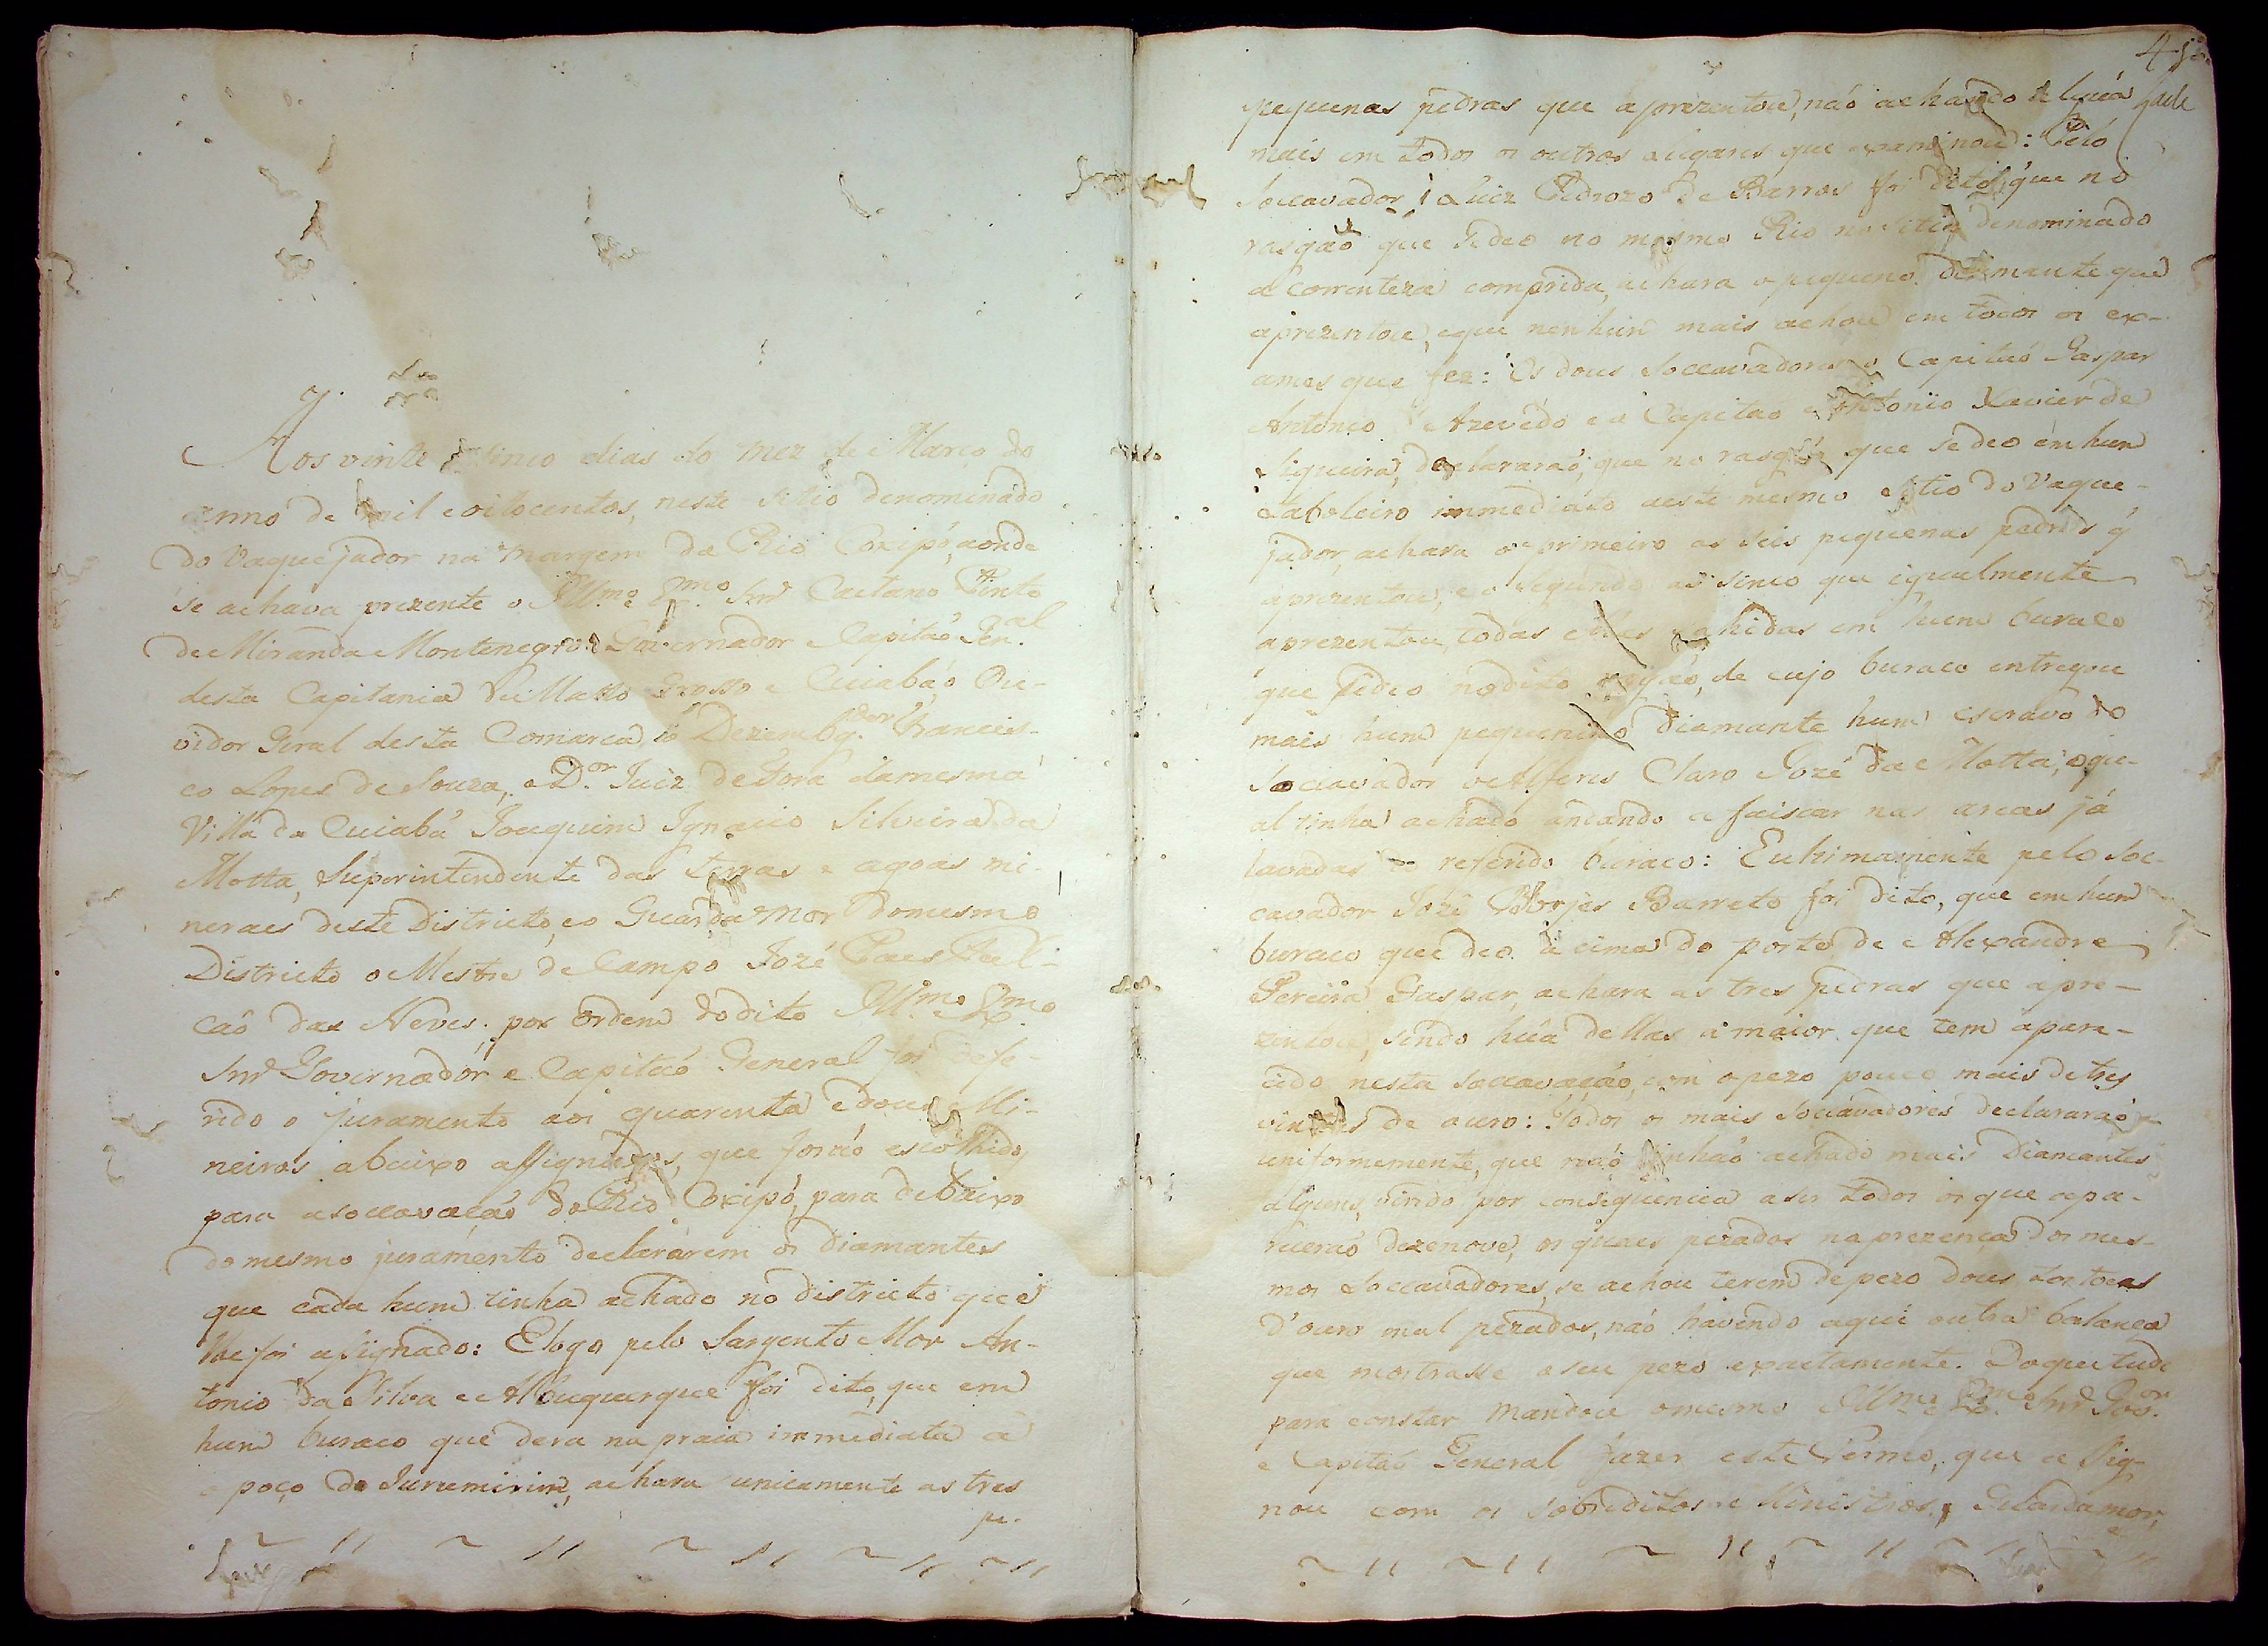 Aos vinte e sinco dias do mez de Março do
anno de mil e oitocentos, neste sitio denominado
do Vaquejador na margem do Rio Coxipó, aonde
se achava prezente o Ill.mo e Ex.mo Snr. Caetano Pinto
de Miranda Montenegro Governador e Capitaõ Gen.al
desta Capitania de Matto Grosso e Cuiabá o Ou-
vidor Geral desta Comarca o Dezembg.dor Francis-
co Lopes de Souza, e o D.or Juiz de Fora da mesma
Villa do Cuiabá Joaquim Ignacio Silveira da
Motta, Superintendente das terras e agoas mi-
neraes deste Districto, e o Guarda Mor do mesmo
Districto o Mestre de Campo Jozé Paes Fal-
caõ das Neves; por ordem do dito Ill.mo e Ex.mo
Snr. Governador e Capitaõ General foi defe-
rido o juramento aos quarenta e dous Mi-
neiros abaixo assignados, que foraõ escolhidos
para a soccavaçaõ do Rio Coxipó, para debaixo
do mesmo juramento declararem os diamantes
que cada hum tinha achado no districto que
lhe foi asignado: E logo pelo Sargento Mor An-
tonio da Silva e Albuquerque foi dito, que em
hum buraco que dera na praia immediata a
o poço do Jurumirim, achara unicamente as tres
pe-
4
pequenas pedras que aprezentou, naõ achando
mais em todos os outros lugares que examinou: Pelo
Soccavador Luiz Pedrozo de Barros foi dito, que no
rasgaõ que se deo no mesmo Rio no sitio denominado
a Correnteza comprida, achara o pequeno diamante que
aprezentou, e que nenhum mais achou em todos os ex-
ames que fez: Os dous Soccavadores o Capitaõ Gaspar
Antonio Azevedo e o Capitaõ Antonio Xavier de
Siqueira, declararaõ, que no rasgaõ que se deo em hum
taboleiro immediato a este mesmo sitio do Vaque-
jador, achara o primeiro as seis pequenas pedras q̃
aprezentou, e o segundo as sinco que igualmente
aprezentou, todas ellas sahidas em hum buraco
que se deo no dito rasgaõ, de cujo buraco entregou
mais hum pequenino diamante hum escravo do
Soccavador o Alferes Claro Jozé da Motta, o qu-
al tinha achado andando a faiscar nas areas já
lavadas do referido buraco: E ultimamente pelo Soc-
cavador Jozé Borjes Barreto foi dito, que em hum
buraco que deo a cima do porto de Alexandre
Pereira Gaspar, achara as tres pedras que apre-
zentou, sendo hũa dellas a maior que tem apare-
cido nesta soccavaçaõ, com o pezo pouco mais de tres
vintes de ouro: Todos os mais Soccavadores declararaõ
uniformemente, que naõ tinhaõ achado mais Diamantes
alguns, vindo por consequencia a ser todos os que apa-
receraõ dezenove, os quaes pezados na prezença dos mes-
mos Soccavadores, se achou terem de pezo dous
d'ouro mal pezados, naõ havendo aqui outra balança
que mostrasse o seu pezo exactamente. Do que tudo
para constar mandou o mesmo Ill.mo e Ex.mo Snr. Gov.or
e Capitaõ General fazer este Termo, que a Sig-
nou com os sobreditos Ministros, Guardamor,
e